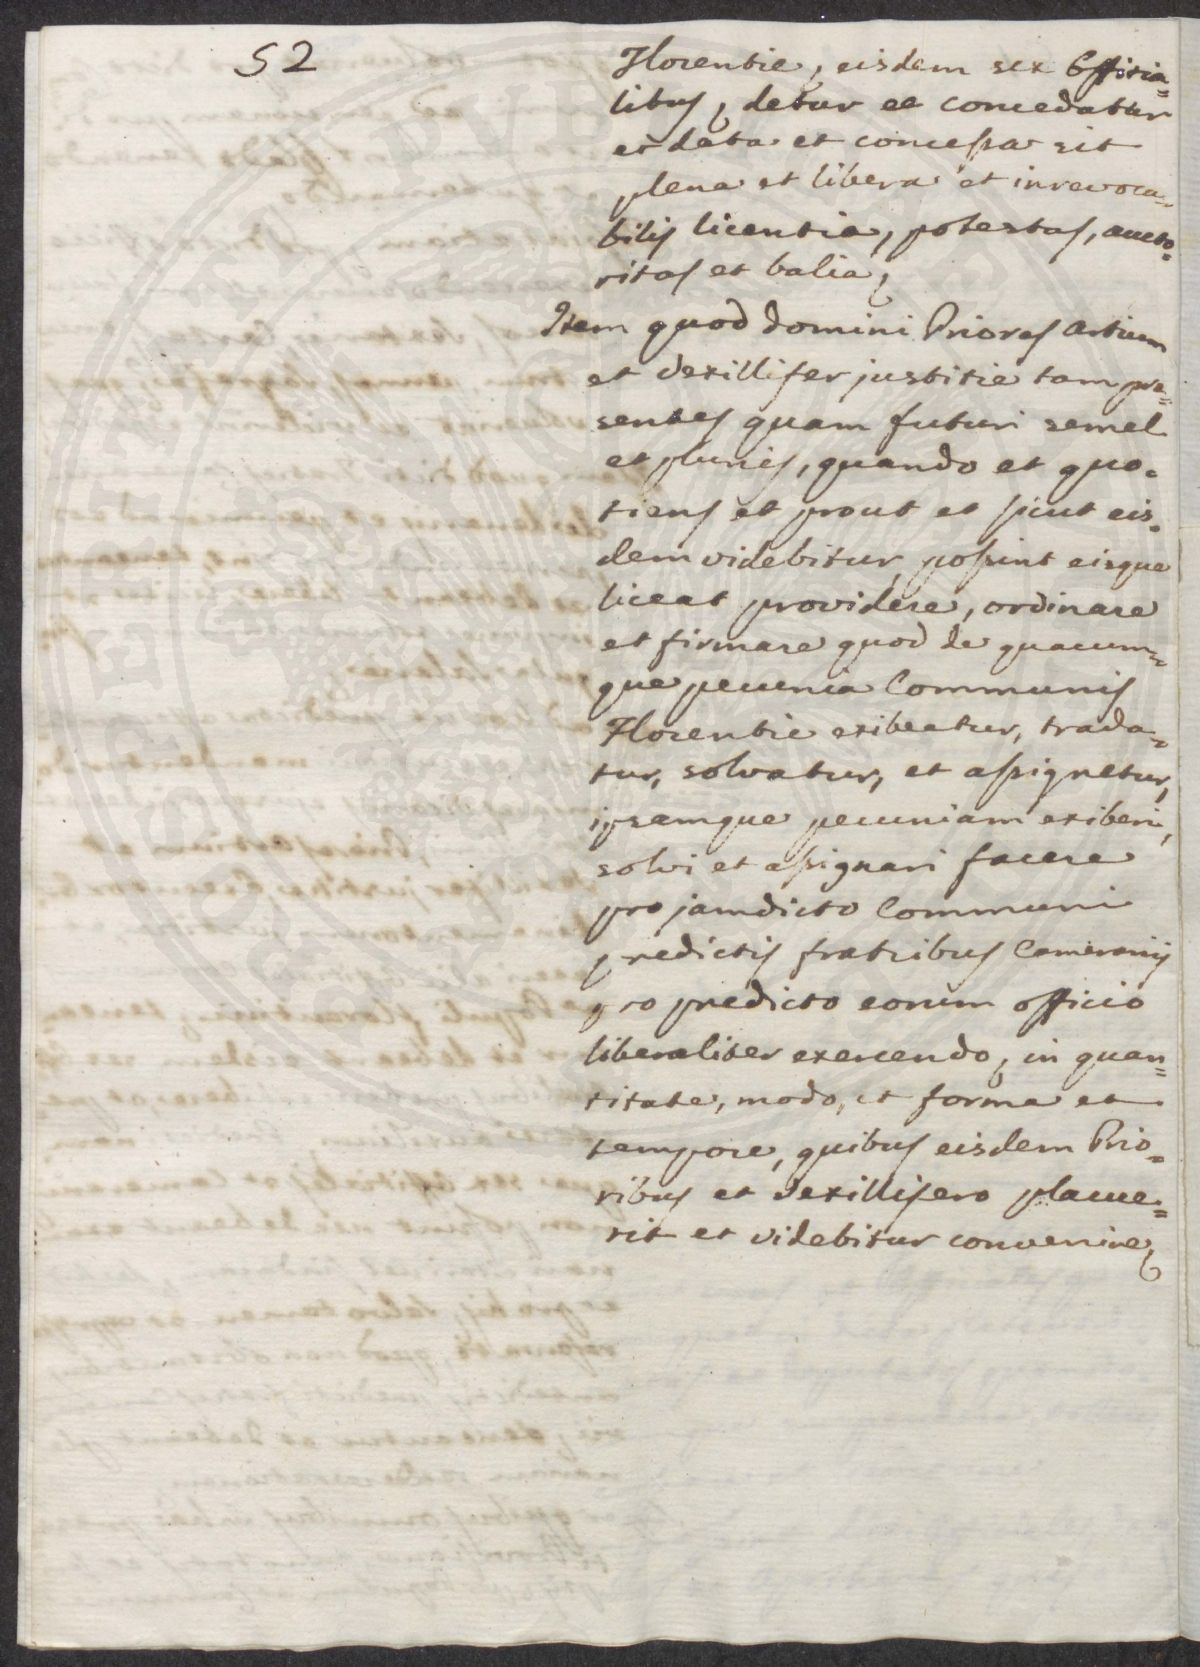 52
Florentie, eisdem sex Offitia=
libus, detur et concedatur
et data et concessa sit
plena et libera et inrevoca=
bilis licentia, potestas, aucto=
ritas et balia,
Item quod domini Priores Artium
et Vexillifer justitie tam pre=
sentes quam futuri semel
et pluries, quando et quo=
tiens et prout et sicut eis=
dem videbitur possint eisque
liceat providere, ordinare
et firmare quod de quacum=
que pecunia Communis
Florentie exibeatur, trada=
tur, solvatur, et assignetur,
ipsamque pecuniam exiberi,
solvi et assignari facere
pro jamdicto Communi
predictis fratribus Camerariis
pro predicto eorum officio
liberaliter exercendo, in quan=
titate, modo, et forma et
tempore, quibus eisdem Prio=
ribus et Vexillifero placue=
rit et videbitur convenire,